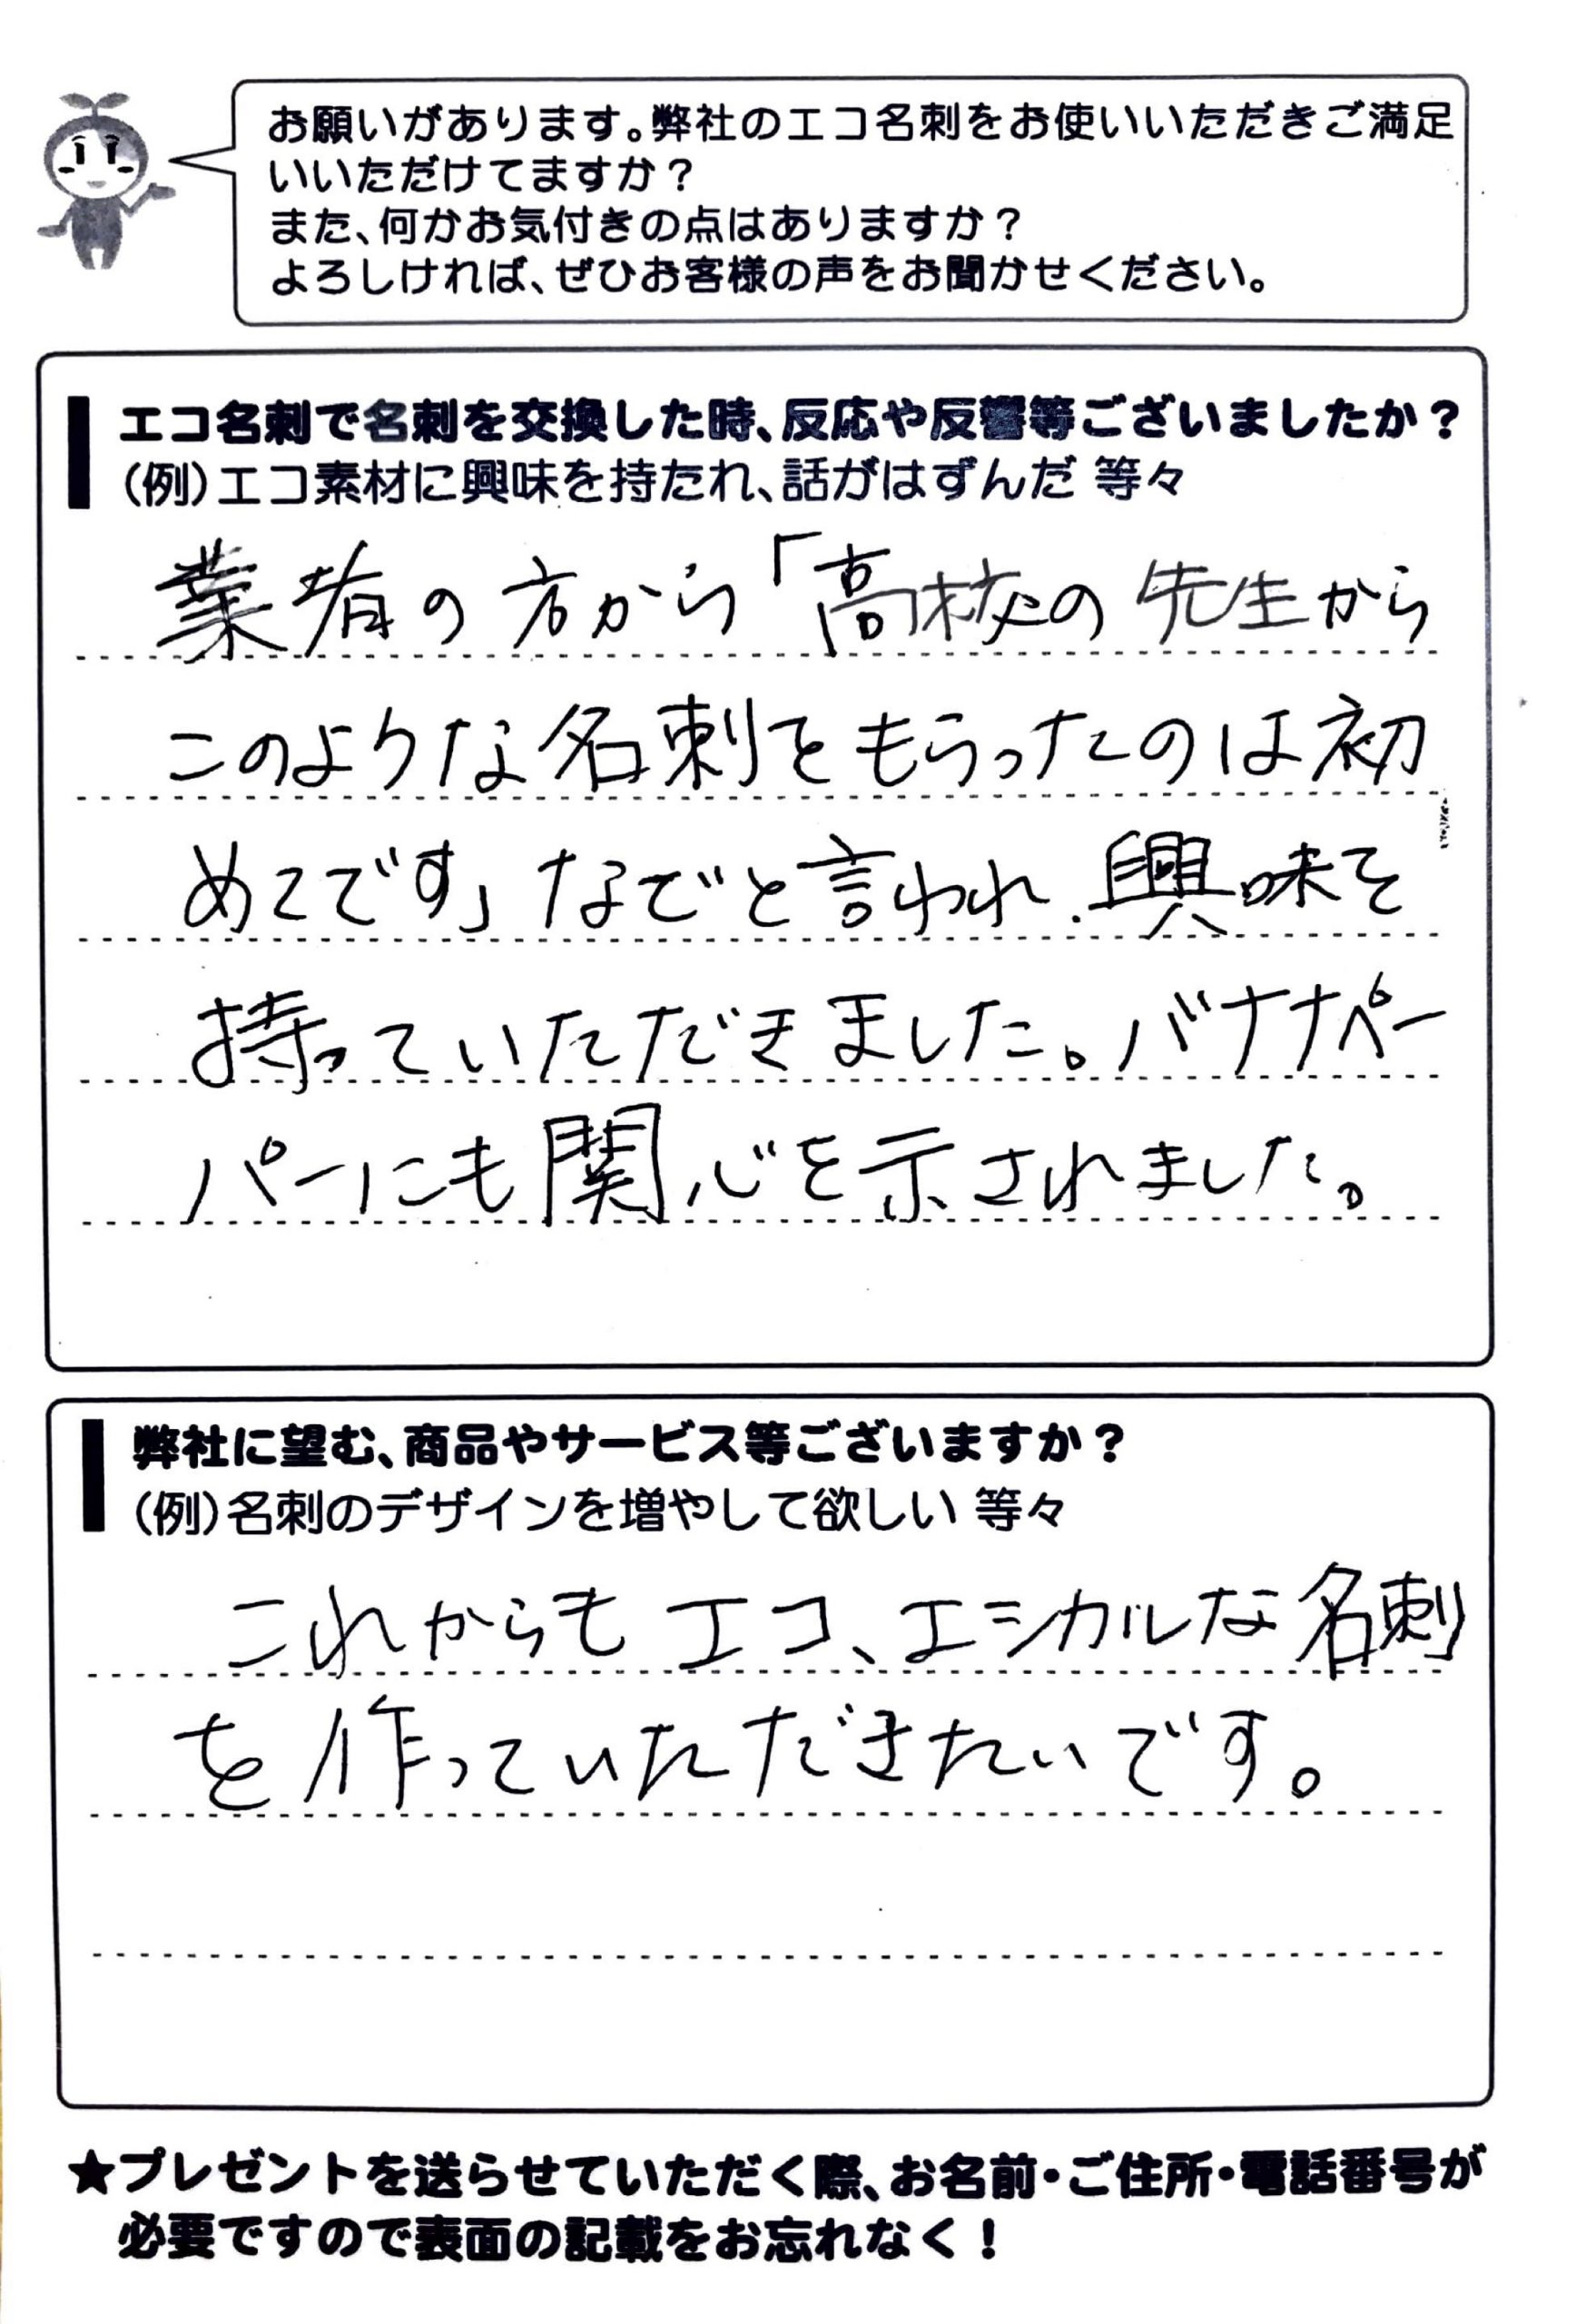 お願いがあります。弊社のエコ名刺をお使いいただきご満足
いいただけてますか？
また、何かお気付きの点はありますか？
よろしければ、ぜひお客様の声をお聞かせください。
エコ名刺で名刺を交換した時、反応や反響等ございましたか？
（例）エコ素材に興味を持たれ、話がはずんだ 等々
業者の方から「高校の先生から
このような名刺をもらったのは初
めてです」などと言われ、興味を
持っていただきました。バナナペー
パーにも関心を示されました。
弊社に望む、商品やサービス等ございますか？
（例）名刺のデザインを増やして欲しい 等々
これからも エコ、エシカルな名刺
を作っていただきたいです。
★プレゼントを送らせていただく際、お名前・ご住所・電話番号が
必要ですので表面の記載をお忘れなく！